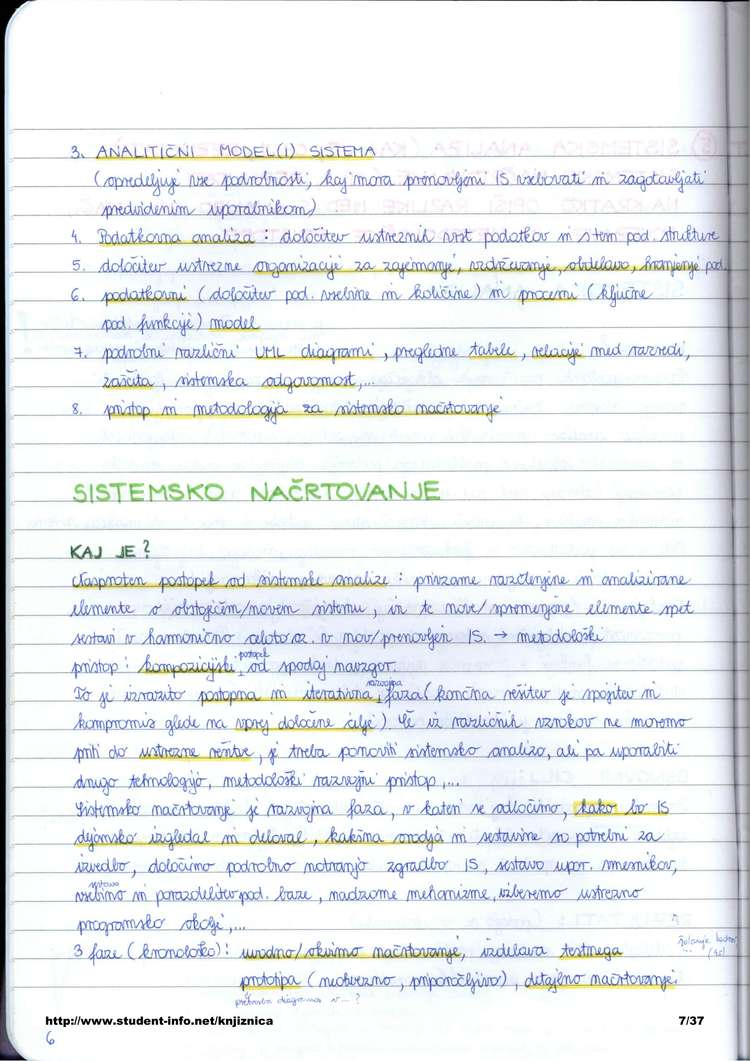 3. ANALITIČNI MODEL(I) SISTEMA
(opredeljuje vse podrobnosti, kaj mora prenovljeni IS vsebovati in zagotavljati
predvidenim uporabnikom)
4. Podatkovna analiza : določitev ustreznih vrst podatkov in s tem pod. strukture
5. določitev ustrezne organizacije za zajemanje, vzdrževanje, obdelavo, hranjenje pod.
6. podatkovni (določitev pod. vsebine in količine) in procesni (ključne
pod. funkcije) model
7. podrobni različni UML diagrami, pregledne tabele, relacije med razredi,
zaščita, sistemska odgovornost,...
8. pristop in metodologija za sistemsko načrtovanje
SISTEMSKO NAČRTOVANJE
KAJ JE?
Nasproten postopek od sistemske analize : privzame razčlenjene in analizirane
elemente o obstoječem/novem sistemu, in te nove/spremenjene elemente spet
sestavi v harmonično celoto oz. v nov/prenovljen IS. → metodološki
pristop : kompozicijski postopek od spodaj navzgor.
To je izrazito postopna in iterativna razvojna faza (končna rešitev je spojitev in
kompromis glede na vprej določene cilje) Če iz različnih vzrokov ne moremo
priti do ustrezne rešitve, je treba ponoviti sistemsko analizo, ali pa uporabiti
drugo tehnologijo, metodološki razvojni pristop,...
Sistemsko načrtovanje je razvojna faza, v kateri se odločimo, kako bo IS
dejansko izgledal in deloval, kakšna orodja in sestavine so potrebni za
izvedbo, določimo podrobno notranjo zgradbo IS, sestavo upor. vmesnikov,
sestavo
vsebino in porazdelitev pod. baze, nadzorne mehanizme, izberemo ustrezno
programsko okolje,...
3 faze (kronološko) : uvodno/okvirno načrtovanje, izdelava testnega
prototipa (neobvezno, priporočljivo), detajlno načrtovanje.
pretvorba diagramov v ... ?
http://www.student-info.net/knjiznica
7/37
6